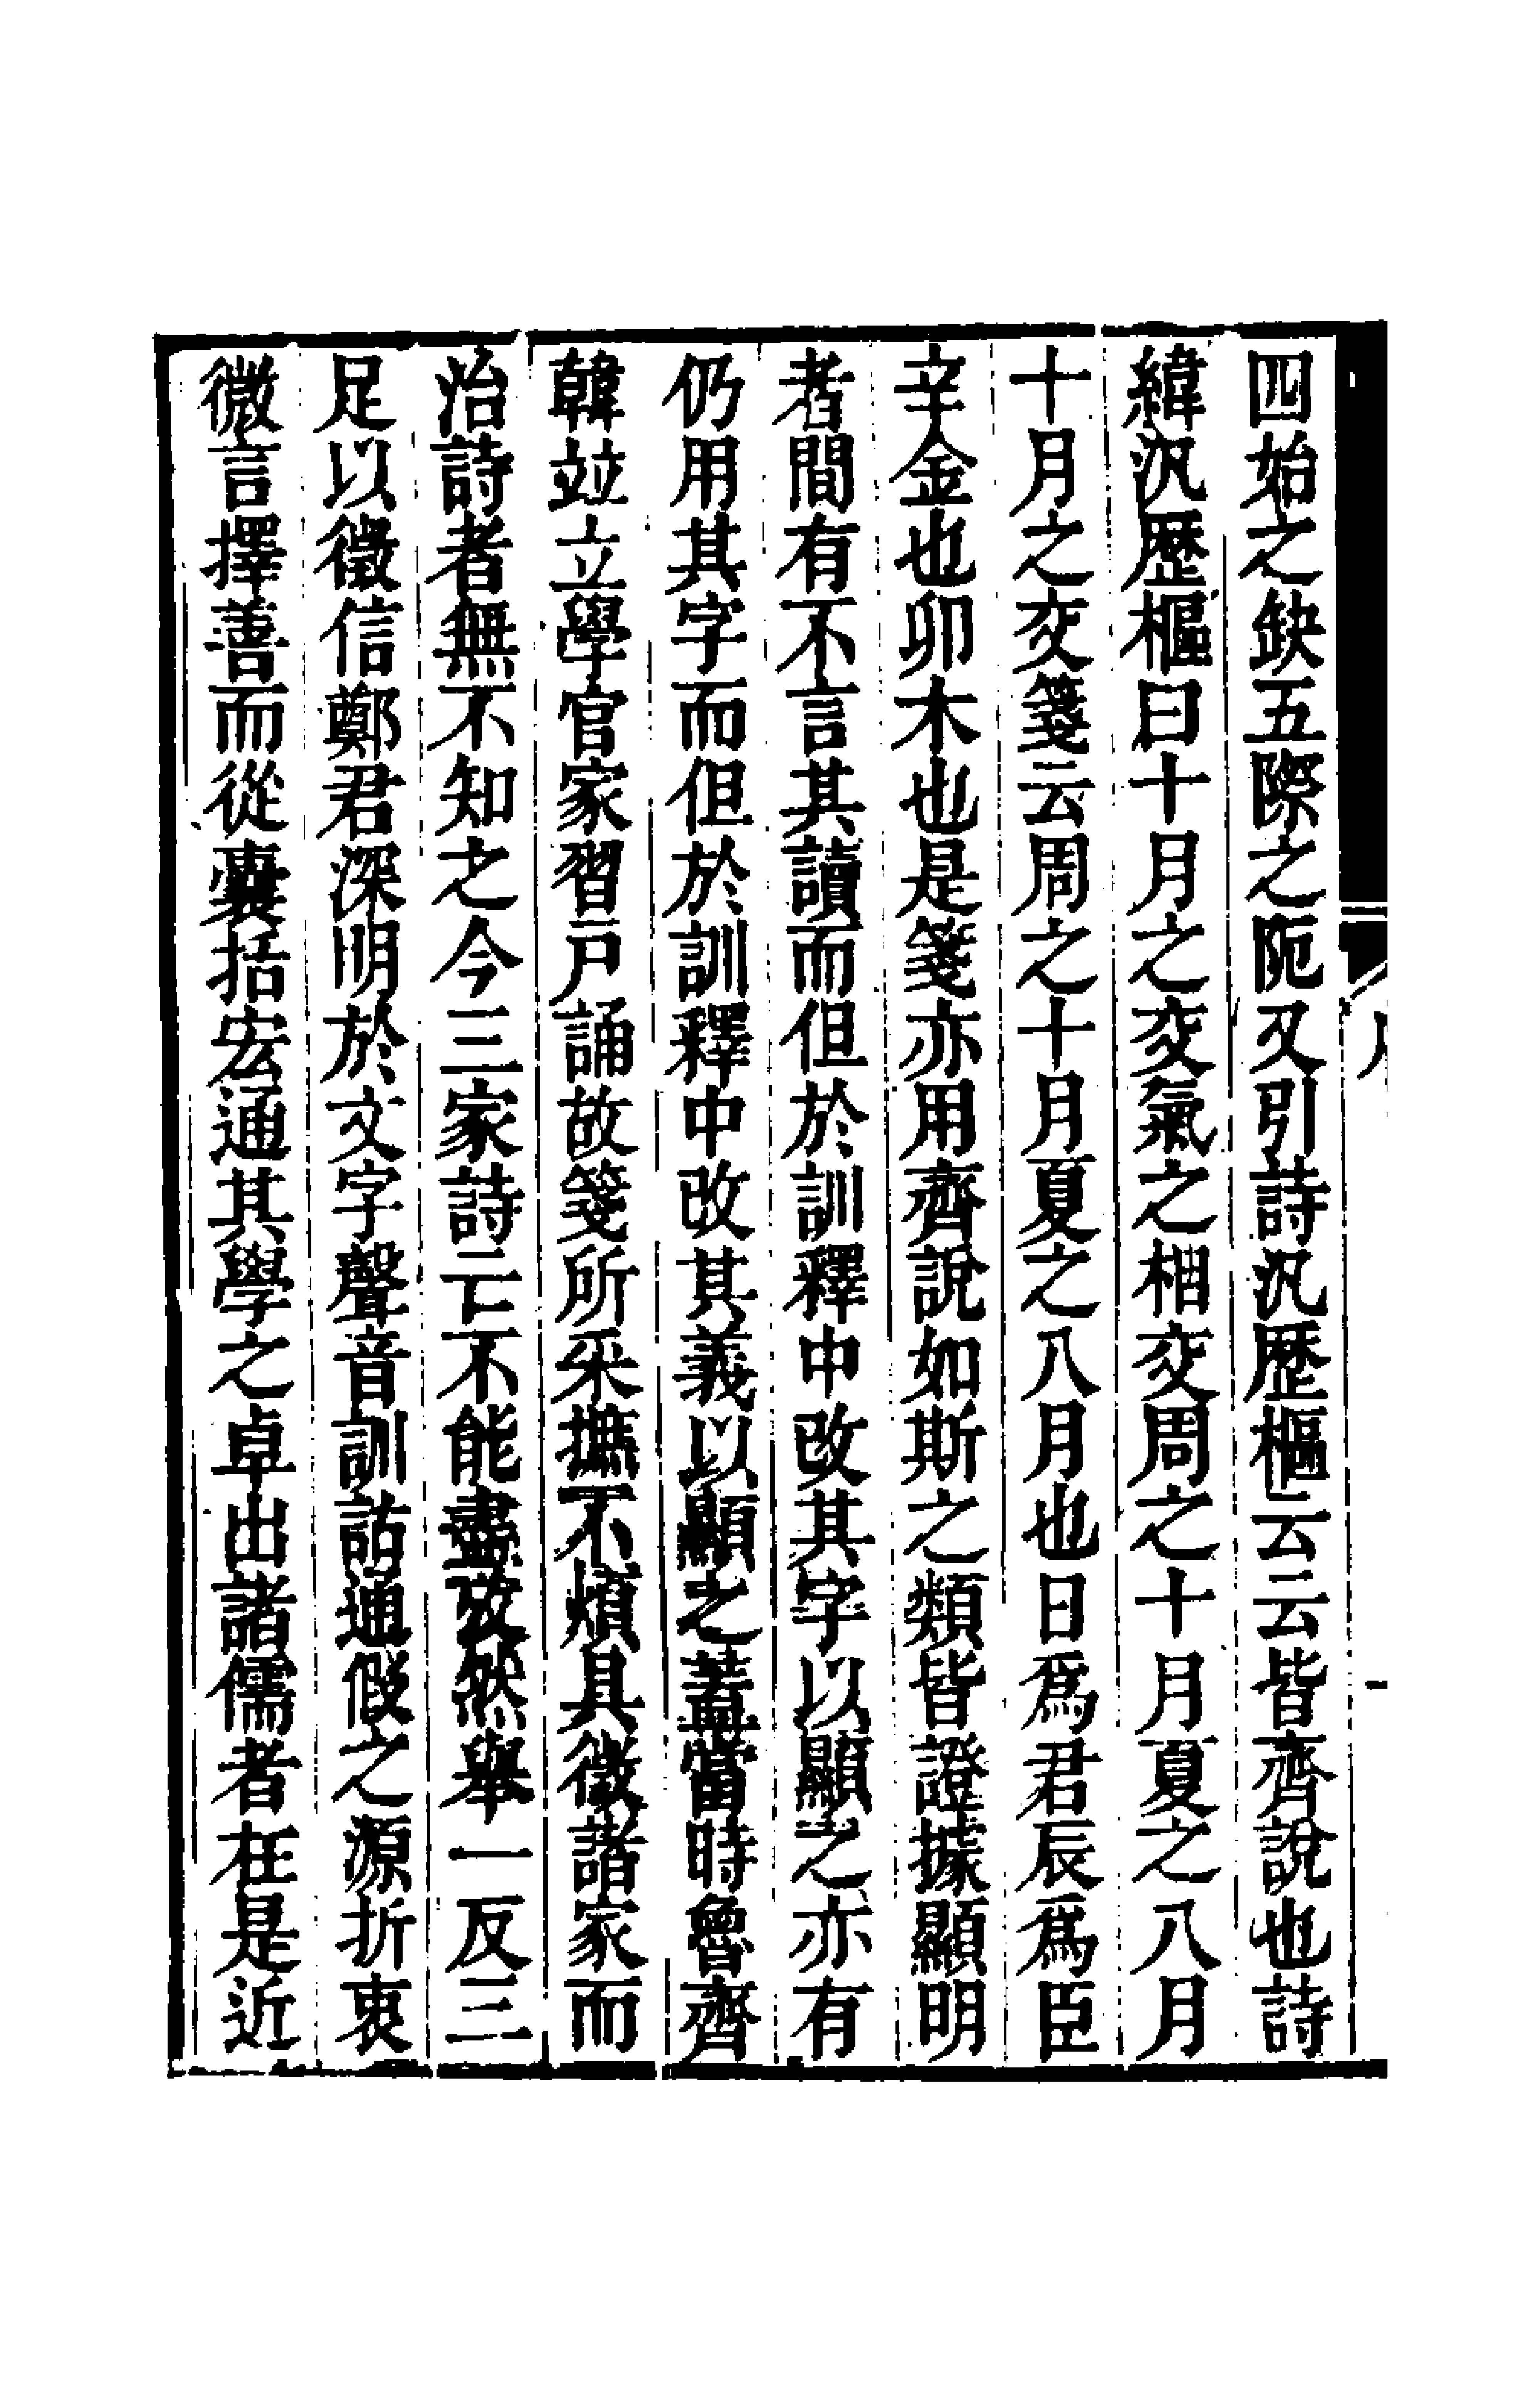 四始之缺五際之阨又引詩汎歴樞云云皆齊說也詩
緯汎歴樞曰十月之交氣之相交周之十月夏之八月
十月之交箋云周之十月夏之八月也日爲君辰爲臣
辛金也卯木也是箋亦用齊說如斯之類皆證據顯明
者間有不言其讀而但於訓釋中改其字以顯之亦有
仍用其字而但於訓釋中改其義以顯之蓋當時魯齊
韓竝立學官家習戸誦故箋所采摭不煩具徵諸家而
治詩者無不知之今三家詩亡不能盡攷然舉一反三
足以徵信鄭君深明於文字聲音訓詁通假之源折衷
微言擇善而從囊括宏通其學之卓出諸儒者在是近